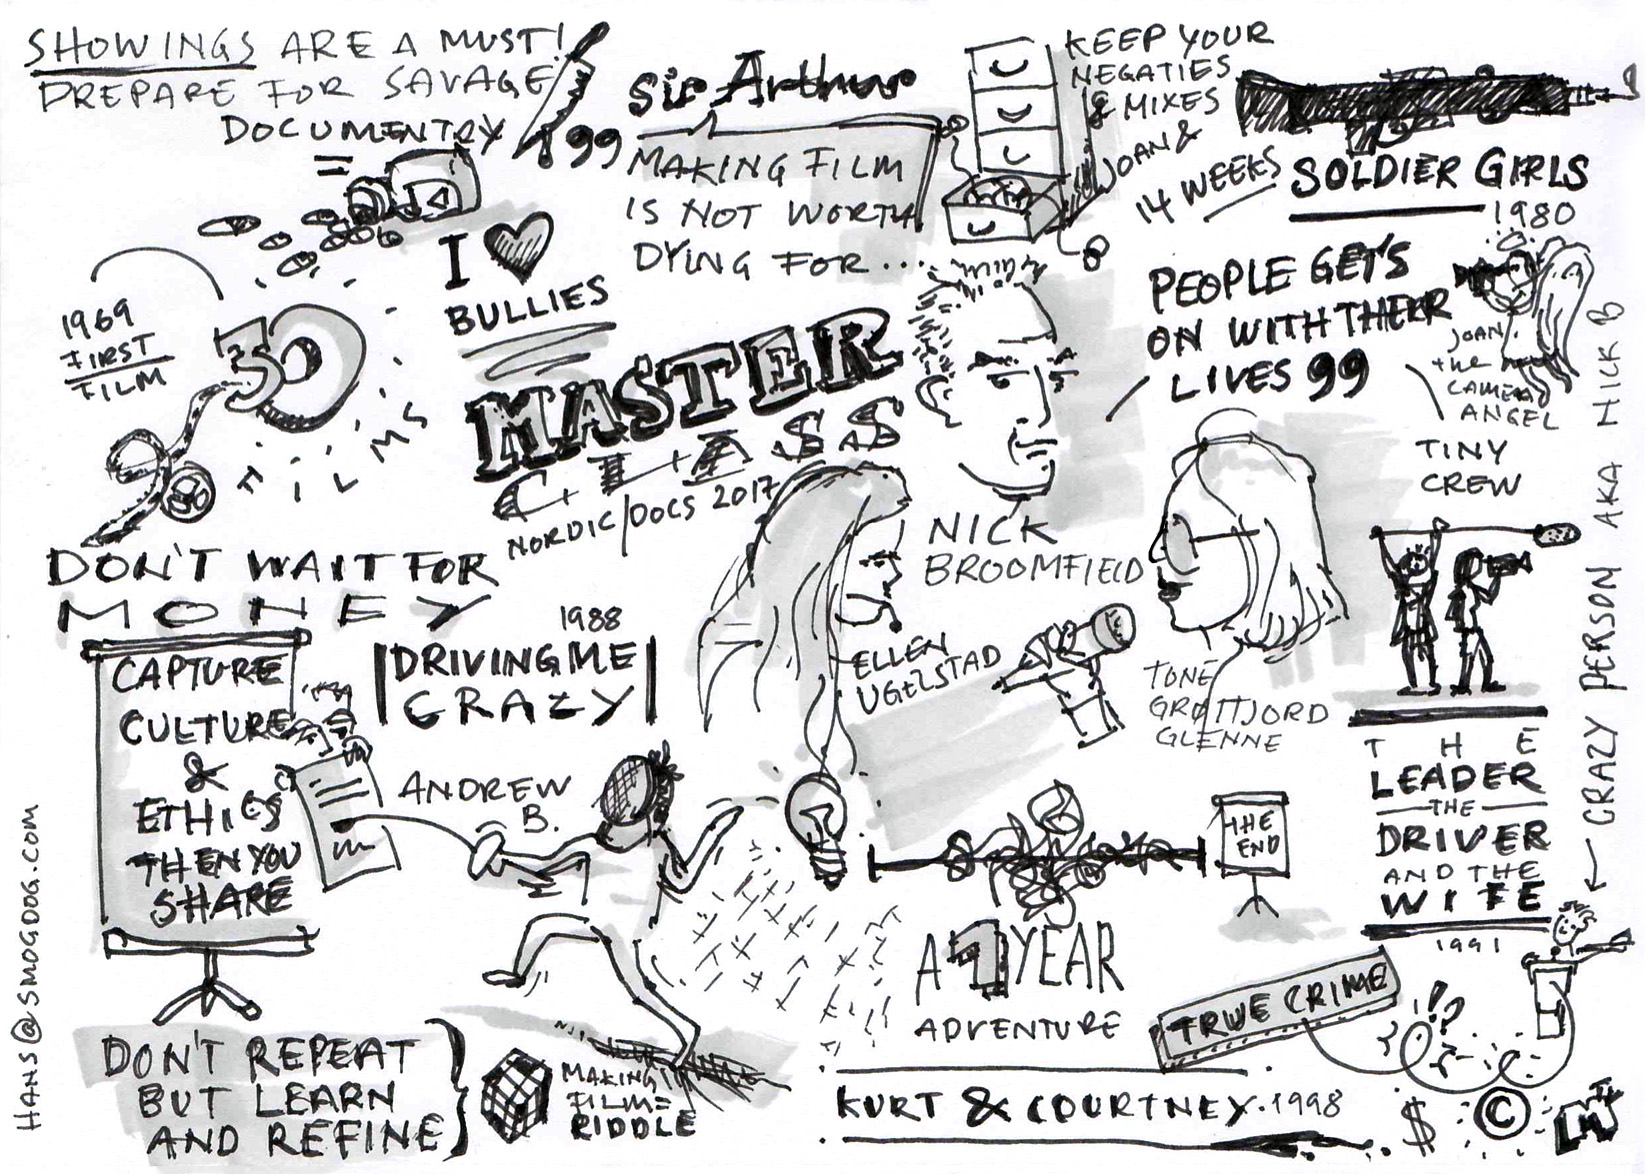 SHOWINGS ARE A MUST!
PREPARE FOR SAVAGE
DOCUMENTRY
=
99
Sir Arthur
MAKING FILM
IS NOT WORTH
DYING FOR...
KEEP YOUR
NEGATIES
& MIXES
JOAN &
14 WEEKS
SOLDIER GIRLS
1980
I ♥
BULLIES
1969
FIRST
FILM
30
FILMS
MASTER
CLASS
NORDIC/DOCS 2017
PEOPLE GETS
ON WITH THEIR
LIVES 99
JOAN
the
CAMERA
ANGEL
TINY
CREW
NICK
BROOMFIELD
DON'T WAIT FOR
MONEY
CAPTURE
CULTURE
&
ETHICS
THEN YOU
SHARE
1988
DRIVING ME
CRAZY
ANDREW
B.
ELLEN
UGELSTAD
TONE
GRØTTJORD
GLENNE
THE
LEADER
THE
DRIVER
AND THE
WIFE
1991
CRAZY PERSON AKA NICK B
THE
END
A 1 YEAR
ADVENTURE
TRUE CRIME
!?
?
KURT & COURTNEY. 1998
$ ©
DON'T REPEAT
BUT LEARN
AND REFINE
MAKING
FILM=
RIDDLE
HANS@SMOGDOG.COM